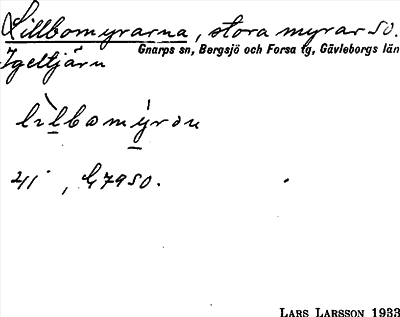 Lillbomyrarna, stora myrar so.
Igeltjärn
Gnarps sn, Bergsjö och Forsa tg, Gävleborgs län
lìlbomýrɑn
211, G7950.
LARS LARSSON 1933